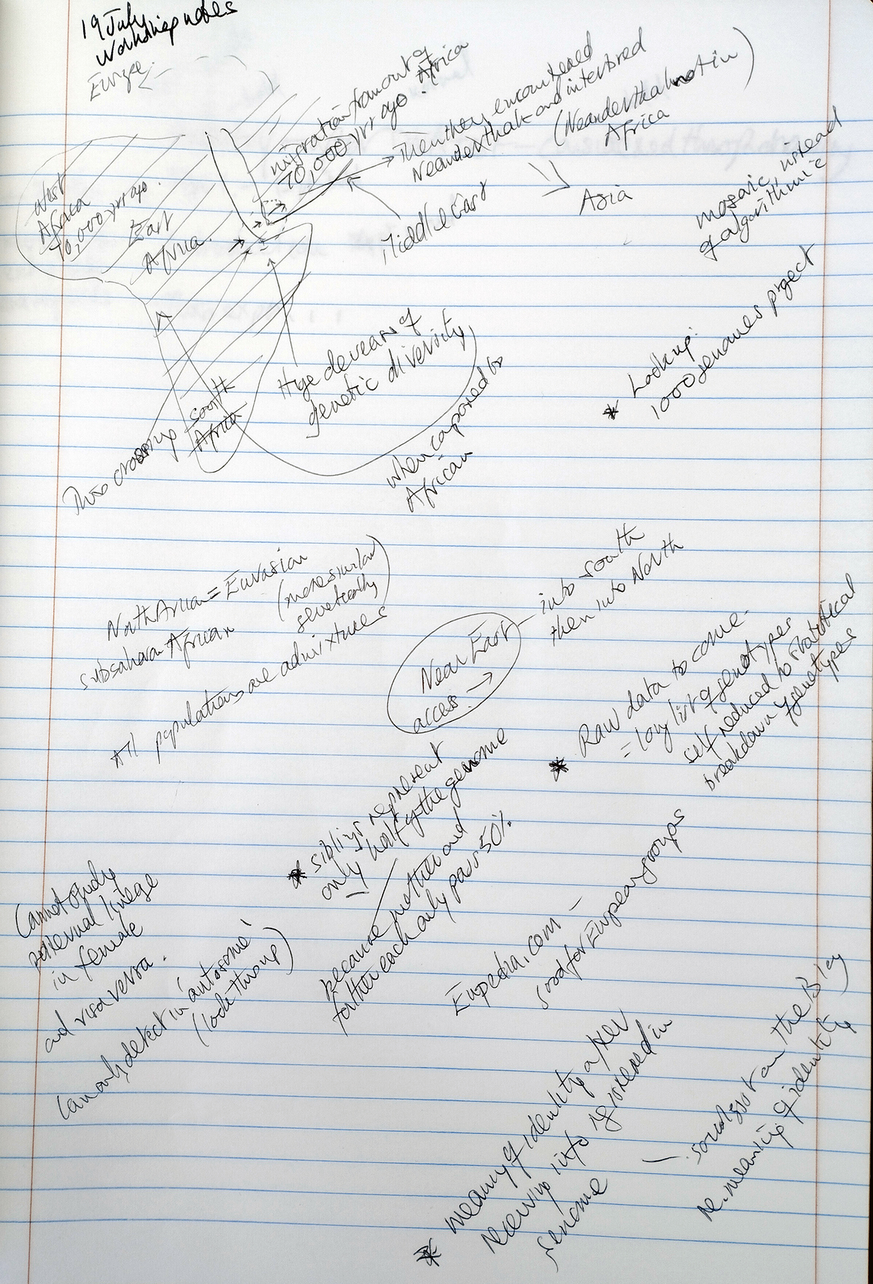 19 July
Workshop notes
Europe
migration from out of
70,000 yrs ago. Africa
Then they encountered
Neanderthals and interbred
(Neanderthal not in
Africa)
Asia
Middle East
West
Africa
70,000 yrs ago.
East
Africa
mosaic instead
of algorithmic
* Look up:
1000 genomes project
Huge decrease of
genetic diversity,
when compared to
African
This crossing
South
Africa
North Africa = Eurasian
subsahara African
(more similar
genetically)
All populations are admixtures
Near East
access →
into south
then into North
* Raw data to come -
= long list of genotypes
self reduced to statistical
breakdown of genotypes
* siblings represent
only half of the genome
because mother and
father each only pass 50%
Cannot study
paternal lineage
in female
and visa versa.
Can only detect in 'autosome'
(look this up)
Eupedia.com -
good for European groups
* meaning of identity after
receiving info registered in
genome
- sociologist on the
re. meaning of identity